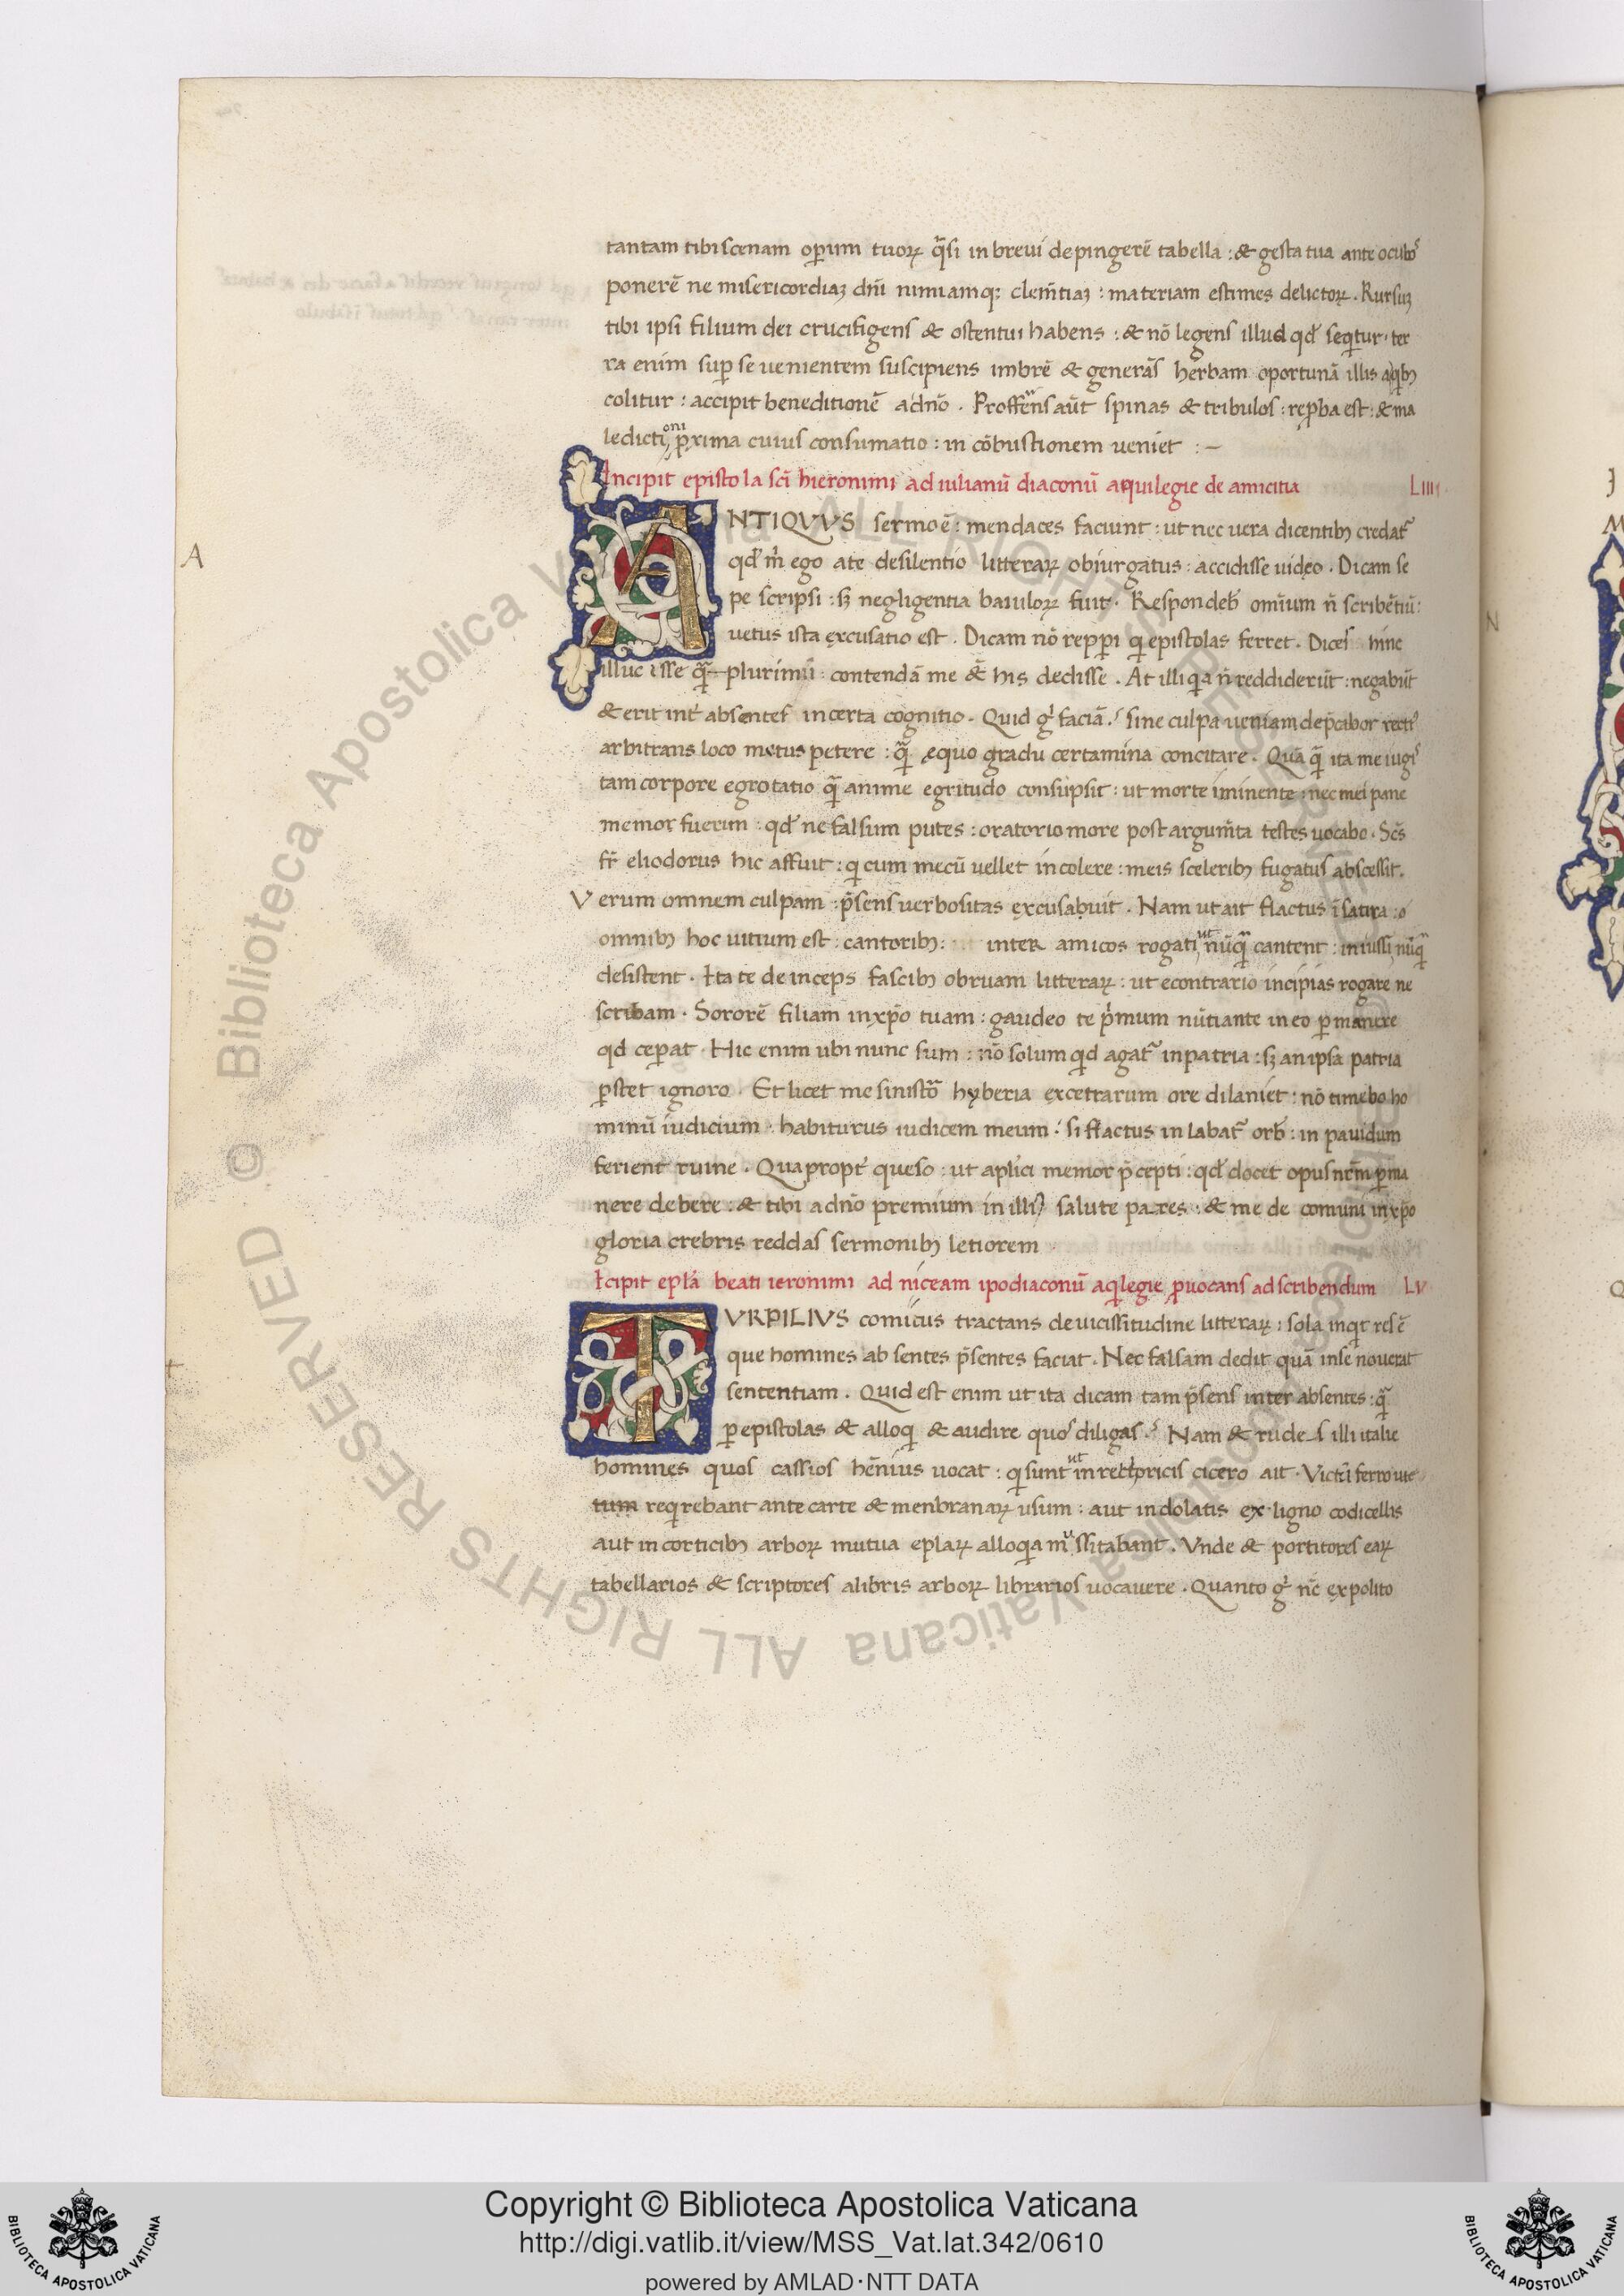 tantam tibi scenam oꝑum tuoꝝ q̃si in brevi depingerẽ tabella : & gesta tua ante oculos
ponerẽ ne misericordiaꝫ dñi nimiamqꝫ clem̃tiaꝫ : materiam estimes delictoꝝ . Rursuꝫ
tibi ipsi filium dei crucifigens & ostentui habens : & nõ legens illud qđ seqitur · ter
ra enim suꝑ se venientem suscipiens imbrẽ & generãs herbam oportunã illis a qibꝫ
colitur : accipit beneditionẽ a dño . Proffẽns aũt spinas & tribulos : reꝓba est : & ma
ledictioni ꝓxima cuius consumatio : in cõbustionem veniet : –
Incipit epistola sc̃i hieronimi ad iulianũ diaconũ aquilegie de amicitia LIIII
A
ANTIQVVS sermo ẽ : mendaces faciunt : ut nec vera dicentibꝫ credat᷑
qđ m̃ ego a te de silentio litteraꝝ obiurgatus : accidisse video . Dicam se
pe scripsi : sꝫ negligentia baiuloꝝ fuit . Respondeb̃ omĩum ñ scribẽtiũ :
vetus ista excusatio est . Dicam nõ repꝑi qi epistolas ferret . Dices hinc
illuc isse q̃ plurimũ : contendã me & his dedisse . At illi qia ñ reddiderũt : negabũt
& erit int̃ absentes incerta cognitio . Quid gͥ faciã ? sine culpa veniam dep̃cabor recti᷒
arbitrans loco motus petere : q̃ equo gradu certamina concitare . Quã q̃ ita me iugi᷒
tam corpore egrotatio q̃ anime egritudo consũpsit : ut morte iminente : nec mei pane
memor fuerim : qđ ne falsum putes : oratorio more post argum̃ta testes vocabo . Sc̃s
fr̃ eliodorus hic affuit : qi cum mecũ vellet incolere : meis sceleribꝫ fugatus abscessit .
Verum omnem culpam : p̃sens verbositas excusabuit . Nam ut ait flactus ĩ satira : o
omnibꝫ hoc vitium est : cantoribꝫ : inter amicos rogati ut nũq̃ cantent : iniussi nũq̃
desistent . Ita te deinceps fascibꝫ obruam litteraꝝ : ut econtrario incipias rogare ne
scribam . Sororẽ filiam in xp̃o tuam : gaudeo te p̃mum nũtiante in eo ꝑmanere
qđ ceꝑat . Hic enim ubi nunc sum : nõ solum qid agat᷑ in patria : sꝫ an ipsa patria
ꝑstet ignoro . Et licet me sinist̃ hyberia excetrarum ore dilaniet : nõ timebo ho
minũ iudicium : habiturus iudicem meum : si ffactus in labat᷑ orb̃ : in pavidum
ferient ruine . Quapropt̃ queso : ut apl̃ici memor p̃cepti : qđ docet opus nr̃m ꝑma
nere debere : & tibi a dño premium in illi᷒ salute pares : & me de comuni in xp̃o
gloria crebris reddas sermonibꝫ letiorem
Icipit epl̃a beati ieronimi ad niceam ipodiaconũ aqilegie ꝓvocans ad scribendum LV
TVRPILIVS comicus tractans de vicissitudine litteraꝝ : sola inqit res ẽ
que homines absentes p̃sentes faciat . Nec falsam dedit quã in se noverat
sententiam . Quid est enim ut ita dicam tam p̃sens inter absentes : q̃
ꝑ epistolas & alloqi & audire quos diligas ? Nam & rudes illi italie
homines quos cassios hẽnius vocat : qi sunt ut in rethoricis cicero ait . Victũ ferro
tum reqirebant ante carte & menbranaꝝ usum : aut in dolatis ex ligno codicellis
aut in corticibꝫ arboꝝ mutua eplaꝝ alloqia mussitabant . Vnde & portitores eaꝝ
tabellarios & scriptores a libris arboꝝ librarios vocavere . Quanto gͥ nc̃ expolito
© Biblioteca Apostolica Vaticana ALL RIGHTS RESERVED
Copyright © Biblioteca Apostolica Vaticana
http://digi.vatlib.it/view/MSS_Vat.lat.342/0610
powered by AMLAD·NTT DATA
BIBLIOTECA APOSTOLICA VATICANA
BIBLIOTECA APOSTOLICA VATICANA